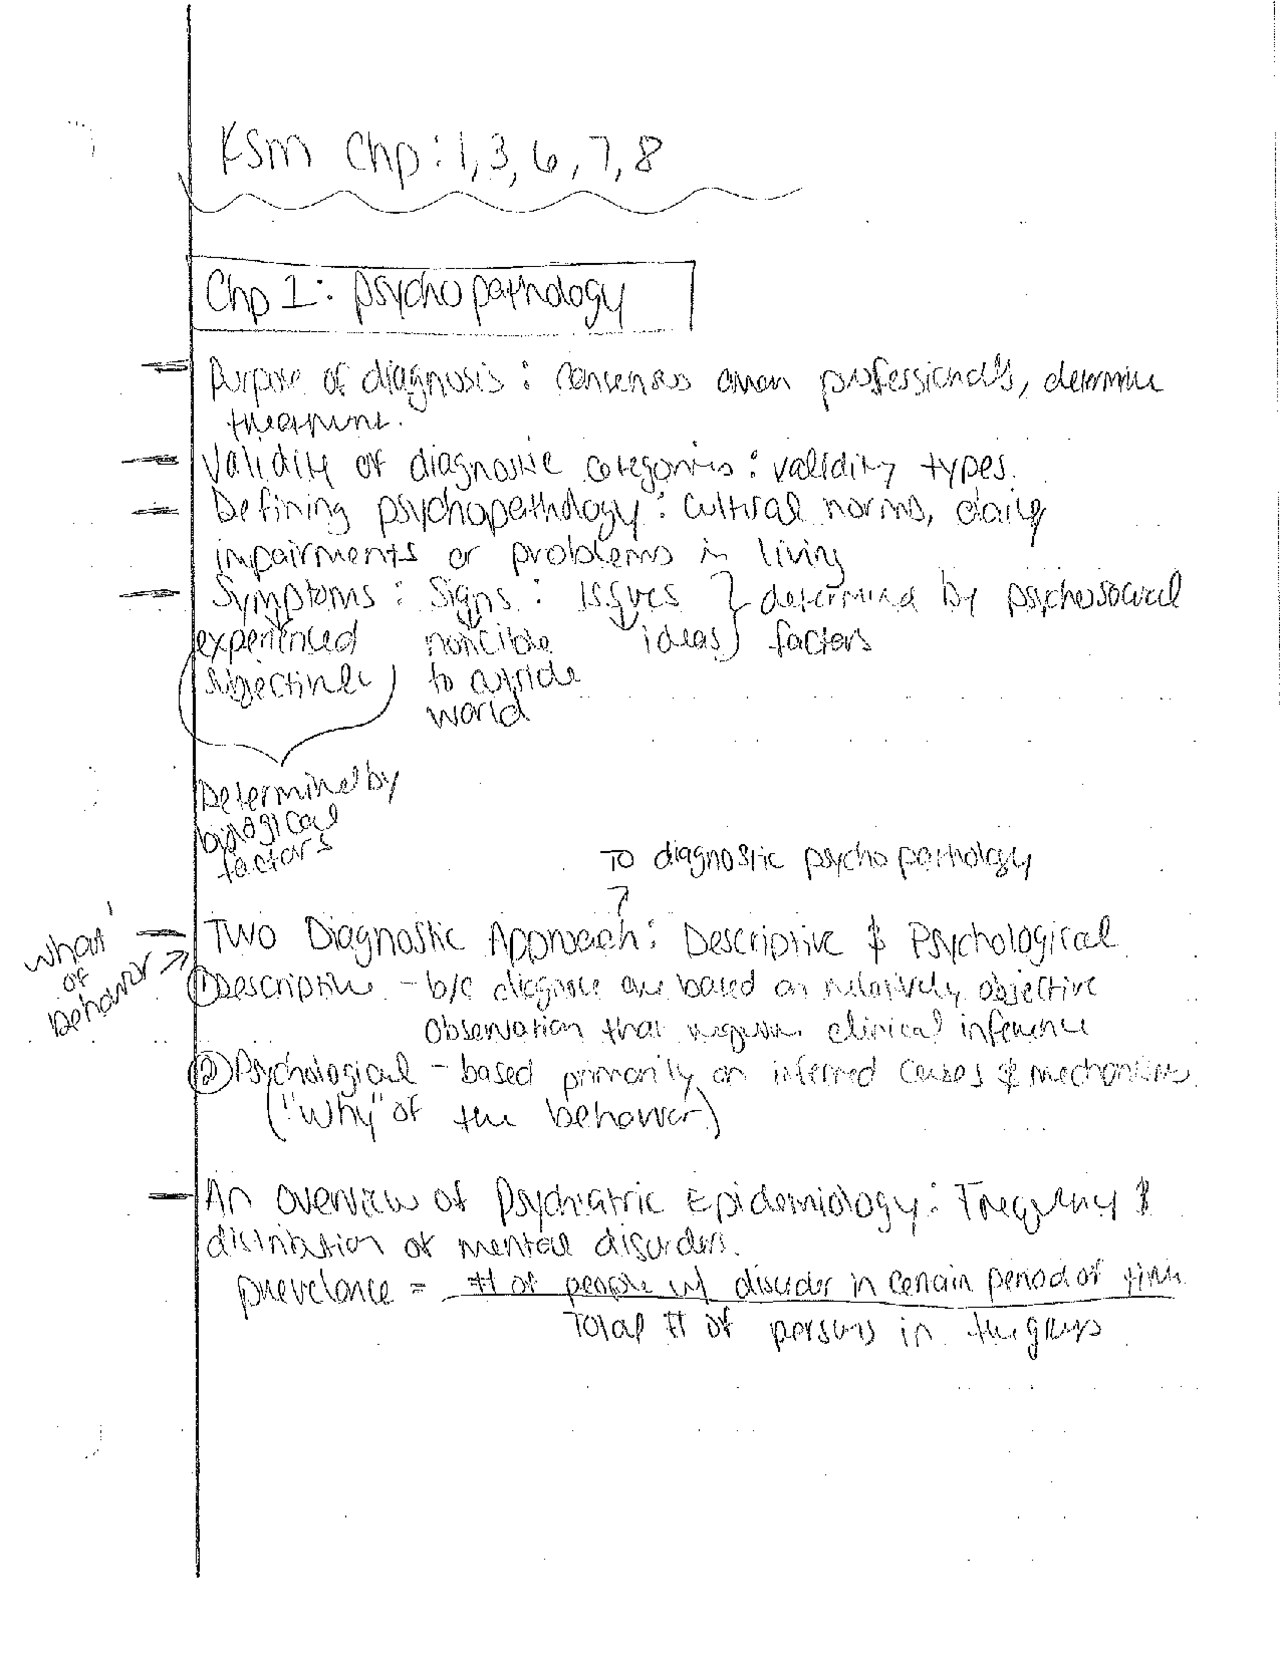 KSM Chp: 1, 3, 6, 7, 8
Chp 1: psychopathology
Purpose of diagnosis: consensus among professionals, determine
treatment.
Validity of diagnostic categories: validity types.
Defining psychopathology: cultural norms, daily
impairments or problems in living
Symptoms: Signs: Issues } determined by psychosocial
experienced noticible ideas factors
subjectively to outside
world
Determined by
biological
factors
To diagnostic psychopathology
Two Diagnostic Approach: Descriptive & Psychological
"what"
of
behavior
① Descriptive - b/c diagnose are based on relatively objective
observation that clinical inference
② Psychological - based primarily on inferred causes & mechanisms
("why" of the behavior)
An overview of Psychiatric Epidemiology: Frequency &
distribution of mental disorders.
prevelance = # of people w/ disorder in certain period of time
Total # of persons in the group